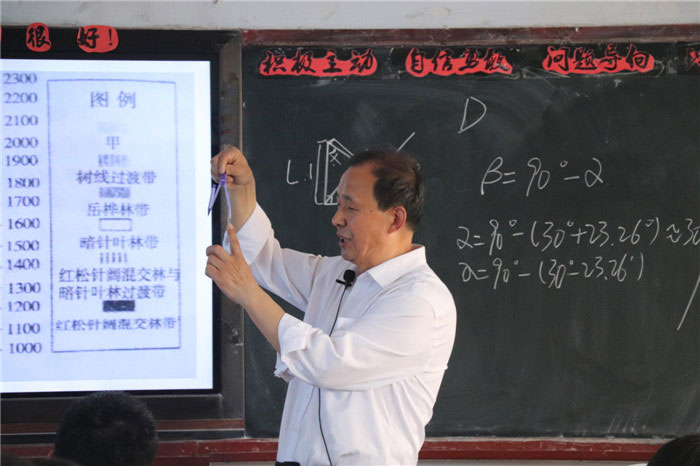 很！好！
积极主动 自信出彩 问题导向
2300
2200
2100
2000
1900
1800
1700
1600
1500
1400
1300
1200
1100
1000
图例
甲
树线过渡带
岳桦林带
暗针叶林带
红松针阔混交林与
暗针叶林过渡带
红松针阔混交林带
D
L.1
β=90°-2
2=90°-(30°+23.26°)≈30
2=90°-(30°-23.26°)